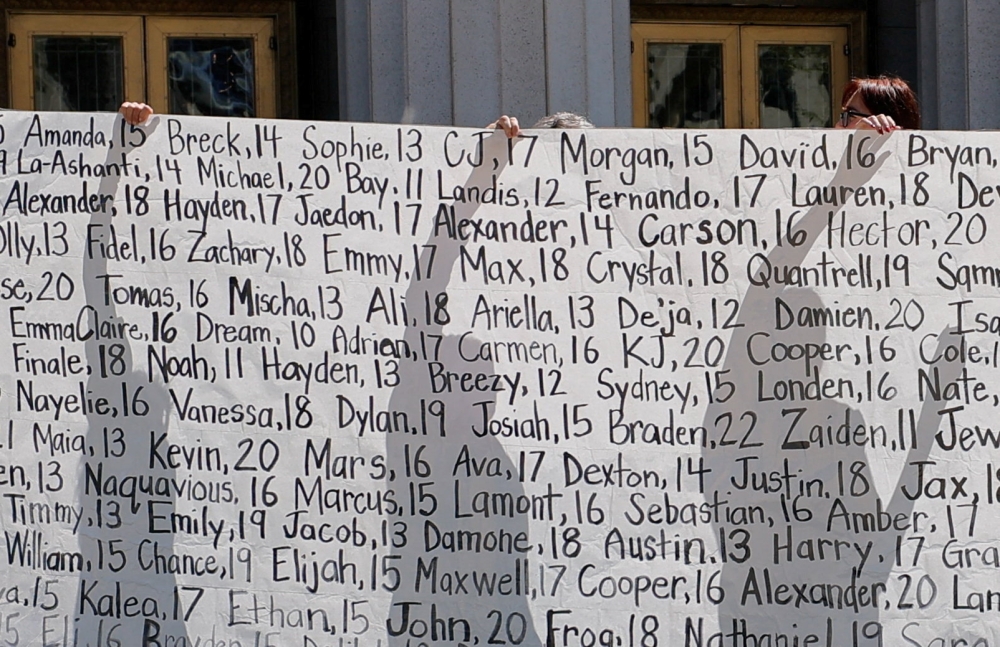 Amanda, 15 Breck, 14 Sophie, 13 CJ, 17 Morgan, 15 David, 16 Bryan,
La-Ashanti, 14 Michael, 20 Bay, 11 Landis, 12 Fernando, 17 Lauren, 18 De
Alexander, 18 Hayden, 17 Jaedon, 17 Alexander, 14 Carson, 16 Hector, 20
olly, 13 Fidel, 16 Zachary, 18 Emmy, 17 Max, 18 Crystal, 18 Quantrell, 19 Sam
se, 20 Tomas, 16 Mischa, 13 Ali, 18 Ariella, 13 De'ja, 12 Damien, 20 Isa
EmmaClaire, 16 Dream, 10 Adrian, 17 Carmen, 16 KJ, 20 Cooper, 16 Cole,
Finale, 18 Noah, 11 Hayden, 13 Breezy, 12 Sydney, 15 Londen, 16 Nate,
Nayelie, 16 Vanessa, 18 Dylan, 19 Josiah, 15 Braden, 22 Zaiden, 11 Jew
Maia, 13 Kevin, 20 Mars, 16 Ava, 17 Dexton, 14 Justin, 18 Jax,
en, 13 Naquavious, 16 Marcus, 15 Lamont, 16 Sebastian, 16 Amber, 17
Timmy, 13 Emily, 19 Jacob, 13 Damone, 18 Austin, 13 Harry, 17 Gra
William, 15 Chance, 19 Elijah, 15 Maxwell, 17 Cooper, 16 Alexander, 20 Lan
a, 15 Kalea, 17 Ethan, 15 John, 20 Frog, 18 Nathaniel, 19
Eli, 16 Brayden, 15